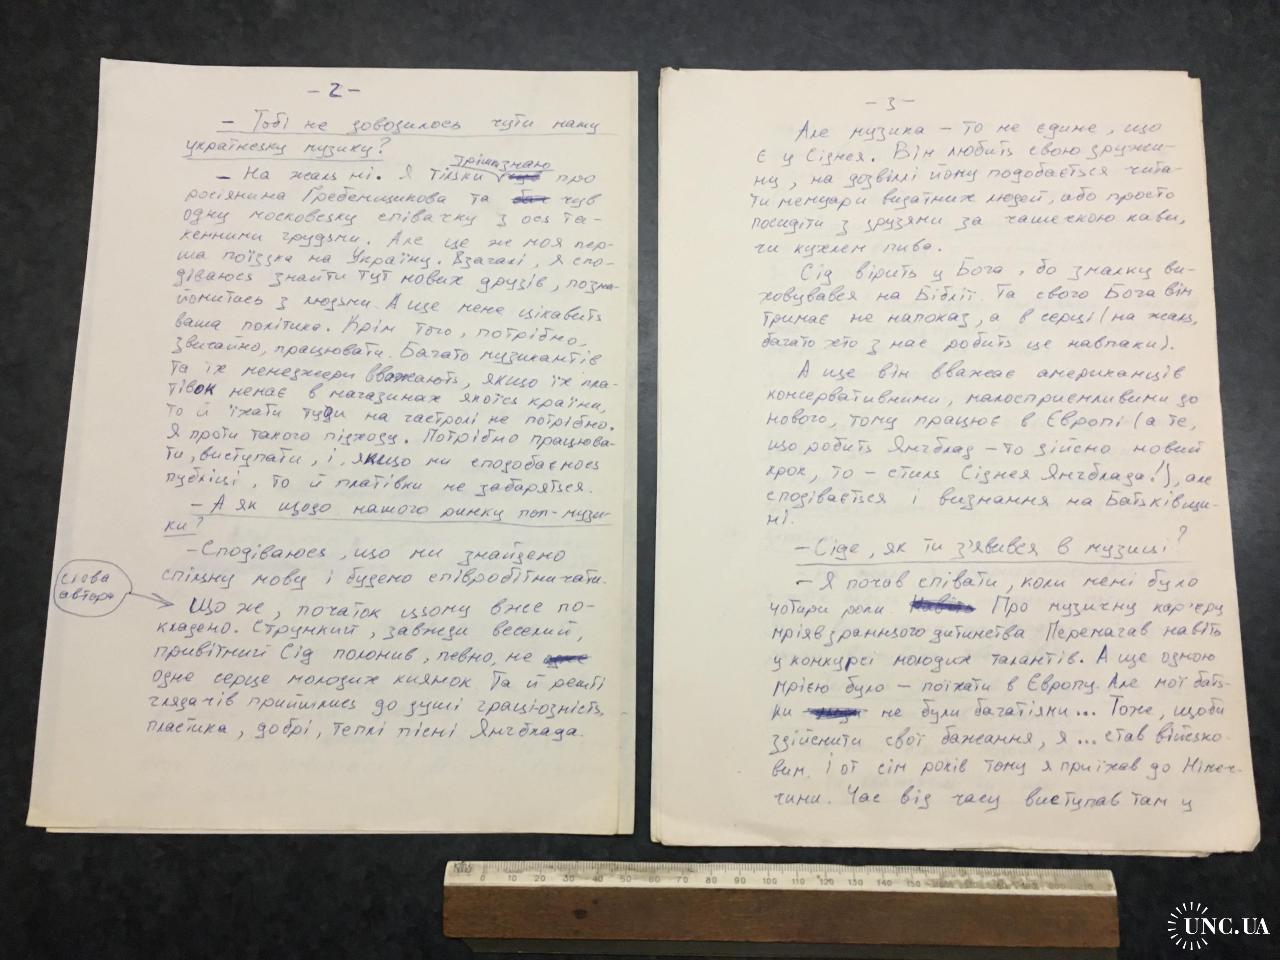 - 2 -
– Тобі не доводилось чути нашу
українську музику?
– На жаль ні. Я тільки трішки знаю про
росіянина Гребенщикова та чув
одну московську співачку з ось та-
кенними грудьми. Але це ж моя пер-
ша поїздка на Україну. Взагалі, я спо-
діваюсь знайти тут нових друзів, позна-
йомитись з людьми. А ще мене цікавить
ваша політика. Крім того, потрібно,
звичайно, працювати. Багато музикантів
та їх менеджери вважають, якщо їх пла-
тівок немає в магазинах якоїсь країни,
то й їхати туди на гастролі не потрібно.
Я проти такого підходу. Потрібно працюва-
ти, виступати, і, якщо ми сподобаємось
публіці, то й платівки не забаряться.
– А як щодо нашого ринку поп-музи-
ки?
– Сподіваюсь, що ми знайдемо
спільну мову і будемо співробітничати.
слова
автора
Що ж, початок цьому вже по-
кладено. Стрункий, завжди веселий,
привітний Сід полонив, певно, не
одне серце молодих киянок. Та й решті
глядачів прийшлись до душі граціозність,
пластика, добрі, теплі пісні Янгблада.
- 3 -
Але музика – то не єдине, що
є у Сіднея. Він любить свою дружи-
ну, на дозвіллі йому подобається чита-
ти мемуари видатних людей, або просто
посидіти з друзями за чашечкою кави,
чи кухлем пива.
Сід вірить у Бога, бо змалку ви-
ховувався на Біблії. Та свого Бога він
тримає не напоказ, а в серці (на жаль,
багато хто з нас робить це навпаки).
А ще він вважає американців
консервативними, малосприємливими до
нового, тому працює в Європі (а те,
що робить Янгблад – то дійсно новий
крок, то – стиль Сіднея Янгблада!), але
сподівається і визнання на Батьківщи-
ні.
– Сіде, як ти з'явився в музиці?
– Я почав співати, коли мені було
чотири роки. Про музичну кар'єру
мріяв з раннього дитинства. Перемагав навіть
у конкурсі молодих талантів. А ще одною
мрією було – поїхати в Європу. Але мої бать-
ки не були багатіями... Тоже, щоби
здійснити свої бажання, я... став військо-
вим. І от сім років тому я приїхав до Німеч-
чини. Час від часу виступав там у
0 10 20 30 40 50 60 70 80 90 100 110 120 130 140
UNC.UA